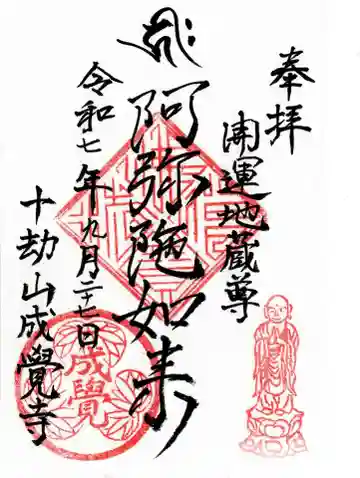 奉拝
開運地蔵尊
阿弥陀如来
令和七年九月二十七日
十劫山成覺寺
成覺